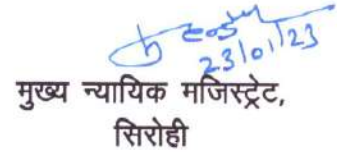 23/01/23
मुख्य न्यायिक मजिस्ट्रेट,
सिरोही